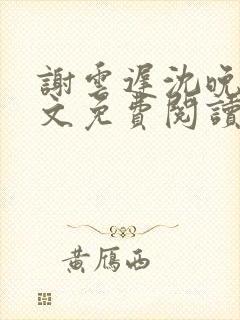 謝雲遲沈晚
文免費閱讀
黃雁西